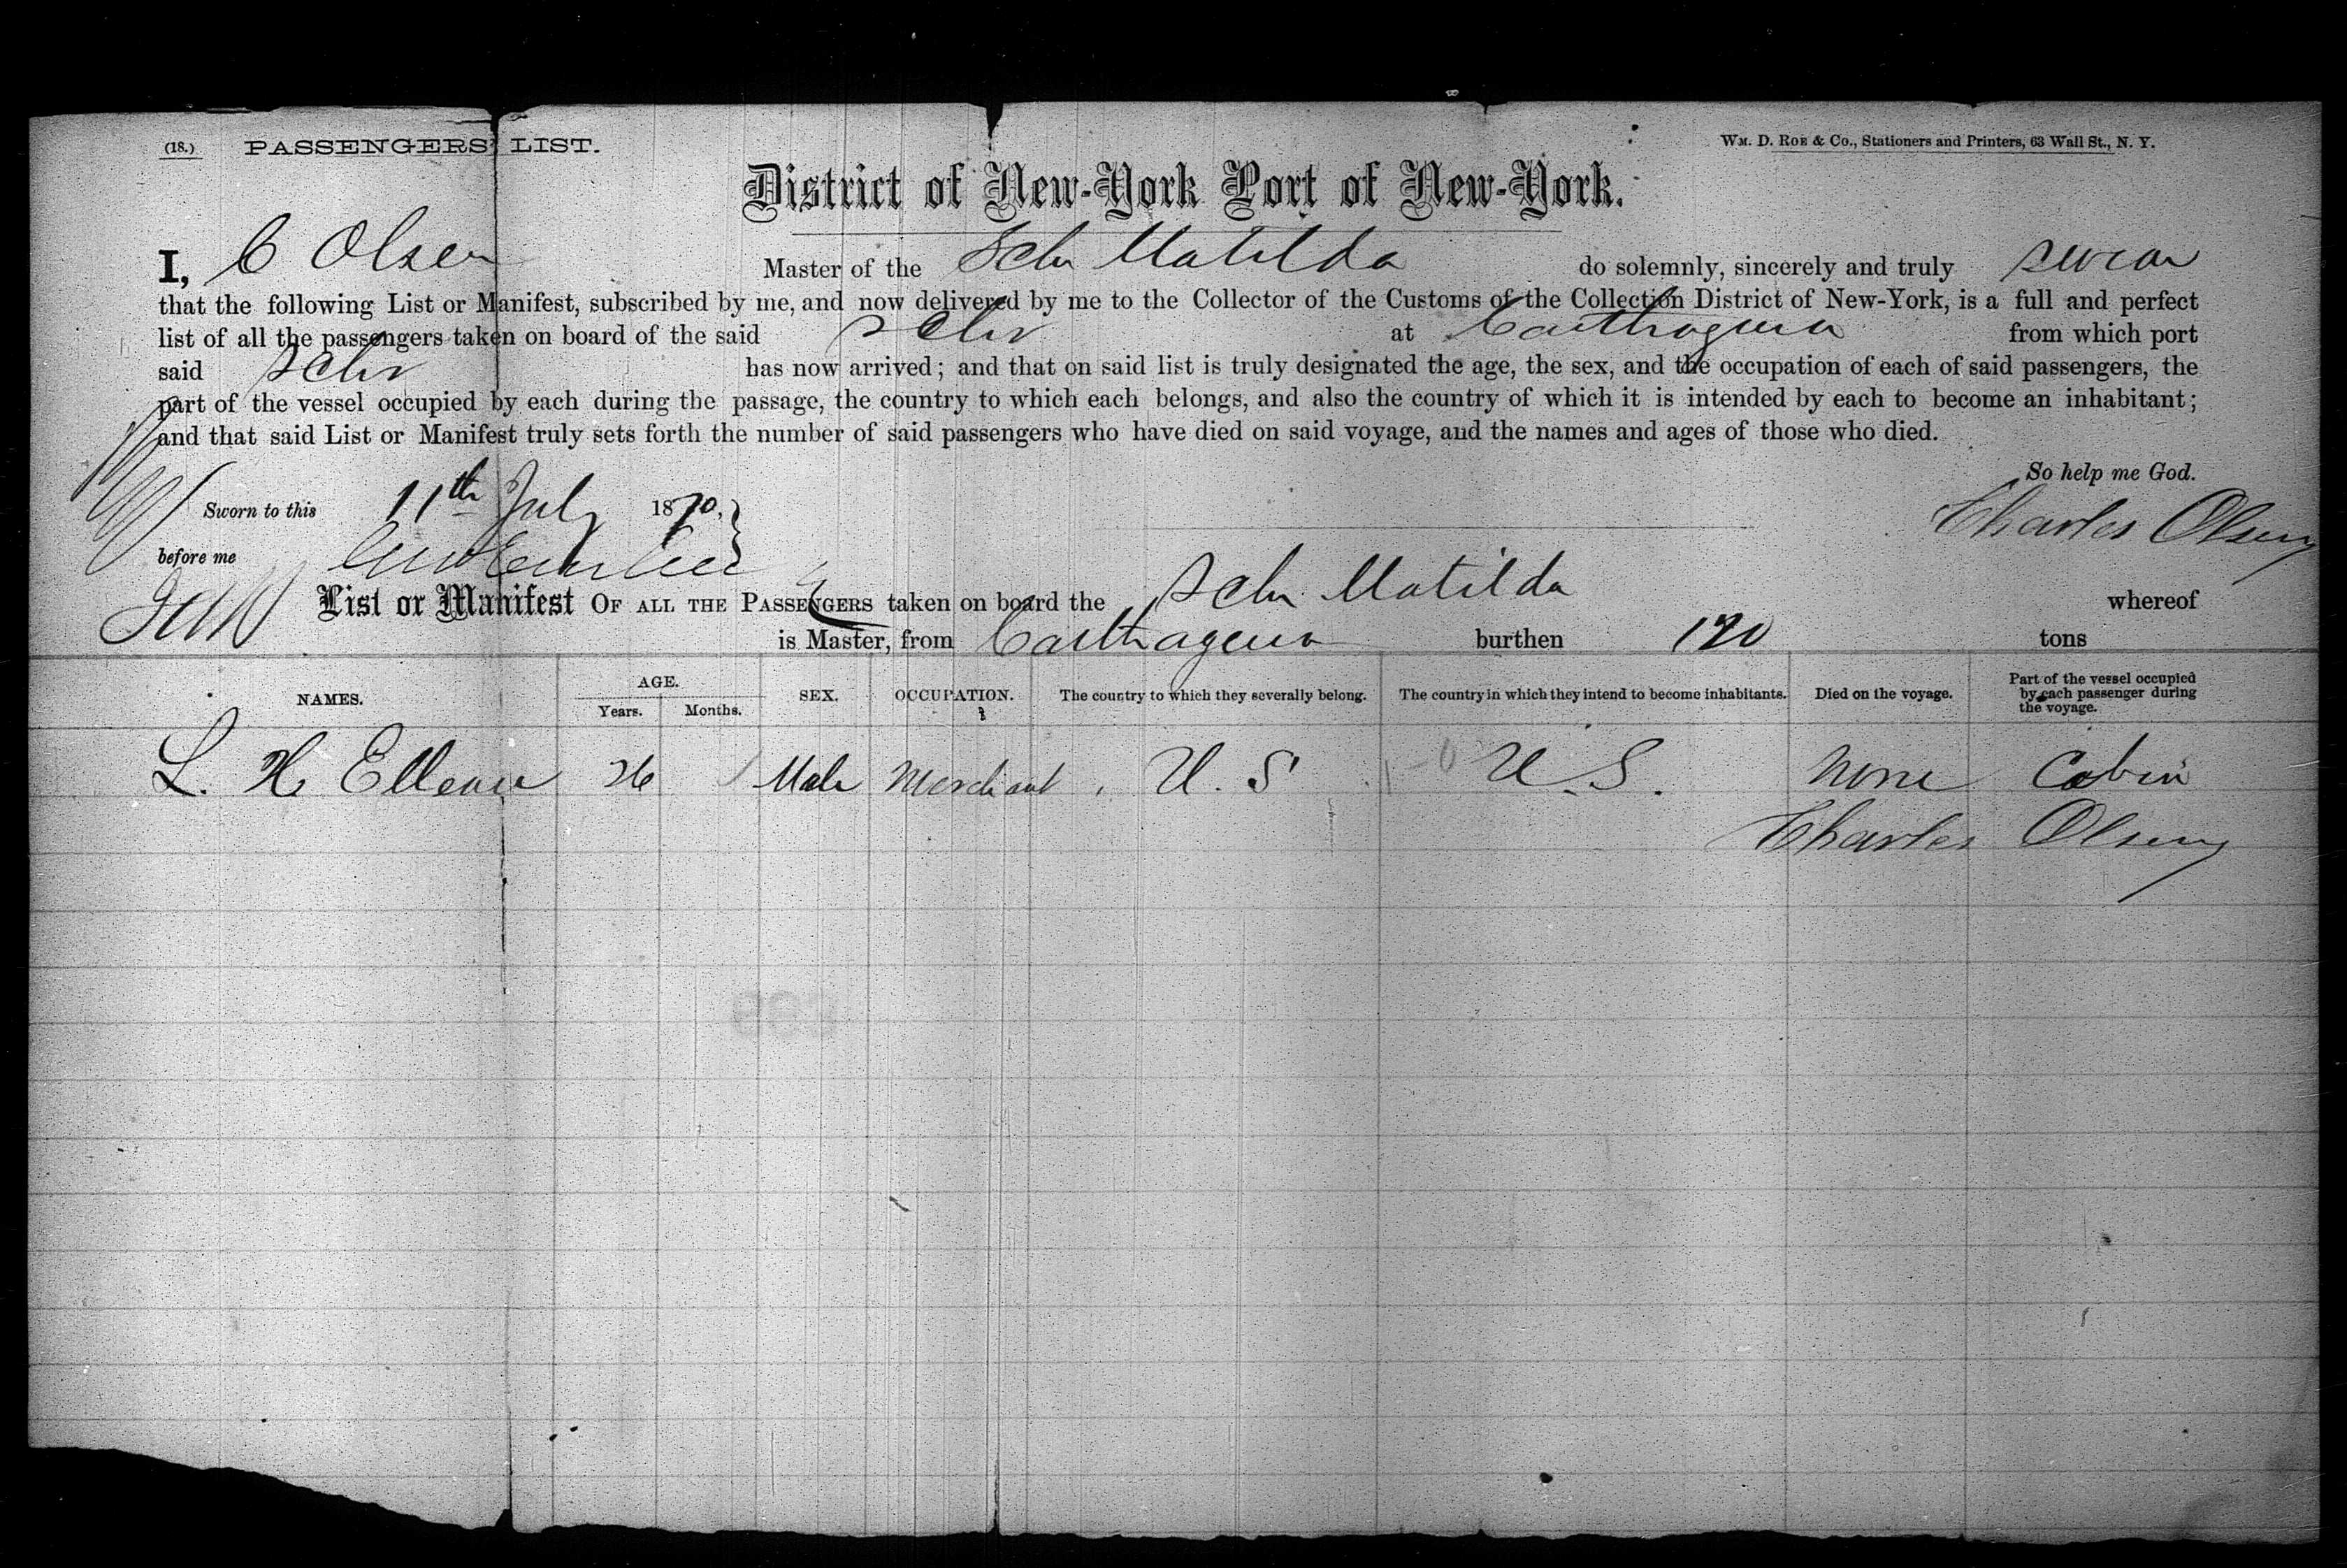 (18.) PASSENGERS' LIST. Wm. D. Roe & Co., Stationers and Printers, 63 Wall St., N. Y.
District of New-York Port of New-York.
I, C Olsen Master of the Schr Matilda do solemnly, sincerely and truly swear
that the following List or Manifest, subscribed by me, and now delivered by me to the Collector of the Customs of the Collection District of New-York, is a full and perfect
list of all the passengers taken on board of the said Schr at Carthagena from which port
said Schr has now arrived; and that on said list is truly designated the age, the sex, and the occupation of each of said passengers, the
part of the vessel occupied by each during the passage, the country to which each belongs, and also the country of which it is intended by each to become an inhabitant;
and that said List or Manifest truly sets forth the number of said passengers who have died on said voyage, and the names and ages of those who died.
So help me God.
Sworn to this 11th July 1870, Charles Olsen
before me
List or Manifest OF ALL THE PASSENGERS taken on board the Schr Matilda whereof
is Master, from Carthagena burthen 120 tons
NAMES. AGE. Years. Months. SEX. OCCUPATION. The country to which they severally belong. The country in which they intend to become inhabitants. Died on the voyage. Part of the vessel occupied by each passenger during the voyage.
L. H 26 Male Merchant U. S U. S. None Cabin
Charles Olsen